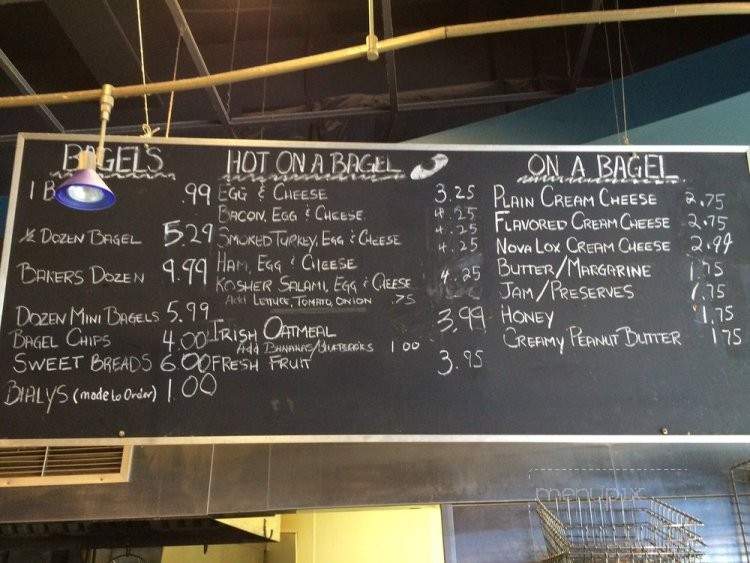 BAGELS
1 B .99
½ DOZEN BAGEL 5.29
BAKERS DOZEN 9.99
DOZEN MINI BAGELS 5.99
BAGEL CHIPS 4.00
SWEET BREADS 6.00
BIALYS (made to Order) 1.00
HOT ON A BAGEL
EGG & CHEESE 3.25
BACON, EGG & CHEESE 4.25
SMOKED TURKEY, EGG & CHEESE 4.25
HAM, EGG & CHEESE 4.25
KOSHER SALAMI, EGG & CHEESE 4.25
Add LETTUCE, TOMATO, ONION .75
IRISH OATMEAL 3.99
Add BANANAS/BLUEBERRIES 1.00
FRESH FRUIT 3.95
ON A BAGEL
PLAIN CREAM CHEESE 2.75
FLAVORED CREAM CHEESE 2.75
NOVA LOX CREAM CHEESE 2.99
BUTTER/MARGARINE 1.75
JAM/PRESERVES 1.75
HONEY 1.75
CREAMY PEANUT BUTTER 1.75
menupix